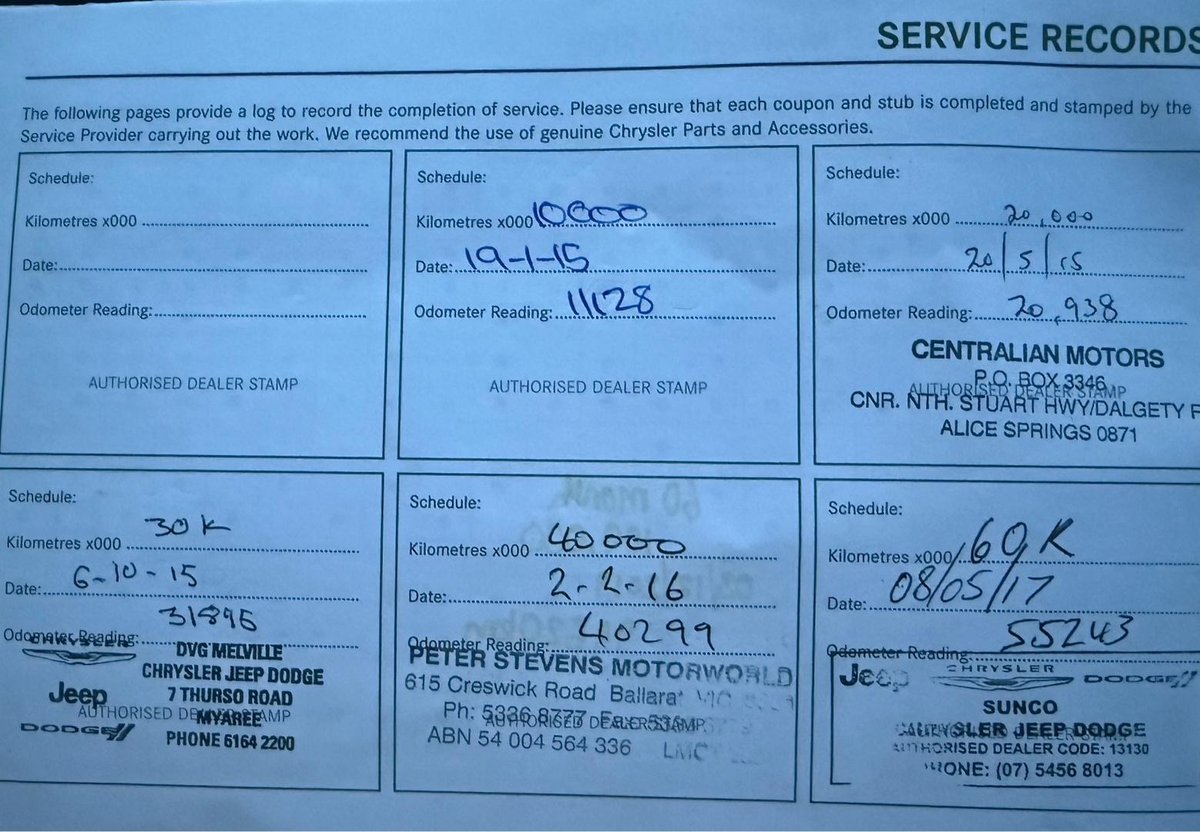 SERVICE RECORDS
The following pages provide a log to record the completion of service. Please ensure that each coupon and stub is completed and stamped by the
Service Provider carrying out the work. We recommend the use of genuine Chrysler Parts and Accessories.
Schedule:
Kilometres x000
Date:
Odometer Reading:
AUTHORISED DEALER STAMP
Schedule:
Kilometres x000 10000
Date: 19-1-15
Odometer Reading: 11128
AUTHORISED DEALER STAMP
Schedule:
Kilometres x000 20,000
Date: 20/5/15
Odometer Reading: 20,938
CENTRALIAN MOTORS
P.O. BOX 3346
AUTHORISED DEALER STAMP
CNR. NTH. STUART HWY/DALGETY
ALICE SPRINGS 0871
Schedule:
Kilometres x000 30K
Date: 6-10-15
Odometer Reading: 31895
CHRYSLER
DVG MELVILLE
CHRYSLER JEEP DODGE
Jeep
7 THURSO ROAD
AUTHORISED DEALER STAMP
MYAREE
DODGE
PHONE 6164 2200
Schedule:
Kilometres x000 40000
Date: 2-2-16
Odometer Reading: 40299
PETER STEVENS MOTORWORLD
615 Creswick Road Ballarat VIC
Ph: 5336 8777 Fax:
AUTHORISED DEALER STAMP
ABN 54 004 564 336 LMCT
Schedule:
Kilometres x000 60K
Date: 08/05/17
Odometer Reading: 55243
Jeep CHRYSLER DODGE
SUNCO
CHRYSLER JEEP DODGE
AUTHORISED DEALER CODE: 13130
PHONE: (07) 5456 8013